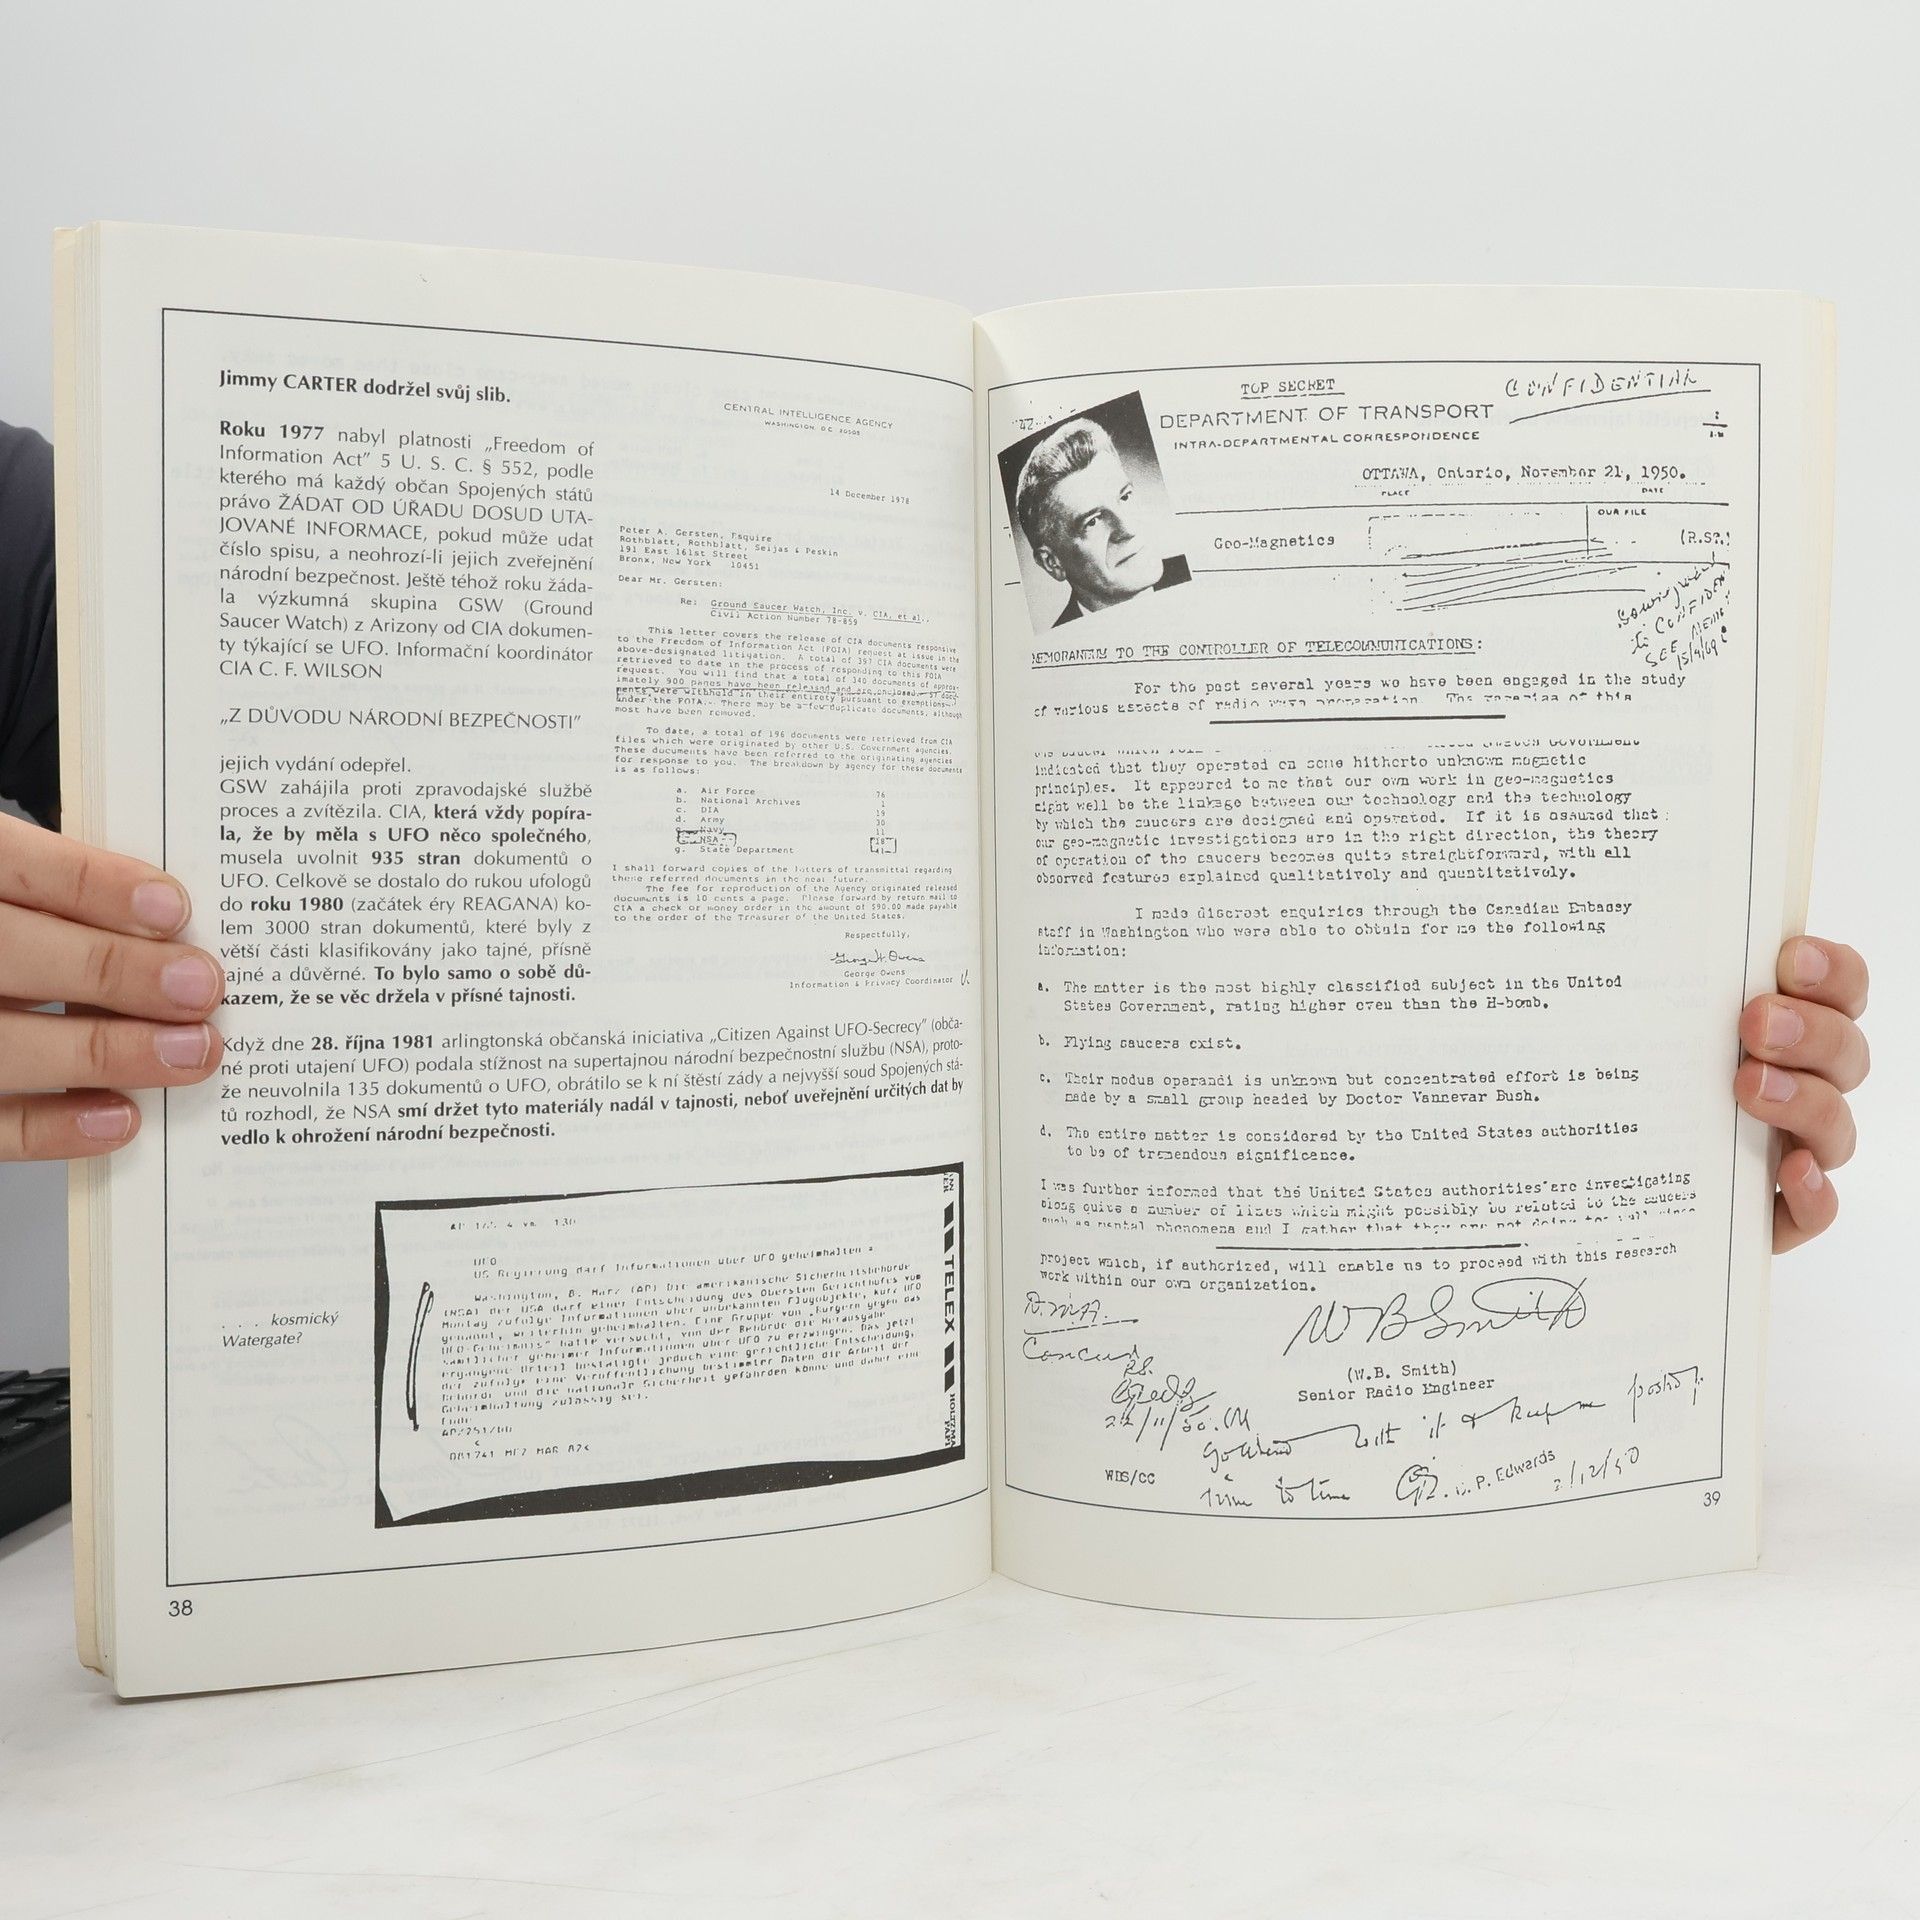 Jimmy CARTER dodržel svůj slib.
Roku 1977 nabyl platnosti „Freedom of
Information Act” 5 U. S. C. § 552, podle
kterého má každý občan Spojených států
právo ŽÁDAT OD ÚŘADU DOSUD UTA-
JOVANÉ INFORMACE, pokud může udat
číslo spisu, a neohrozí-li jejich zveřejnění
národní bezpečnost. Ještě téhož roku žáda-
la výzkumná skupina GSW (Ground
Saucer Watch) z Arizony od CIA dokumen-
ty týkající se UFO. Informační koordinátor
CIA C. F. WILSON
„Z DŮVODU NÁRODNÍ BEZPEČNOSTI”
jejich vydání odepřel.
GSW zahájila proti zpravodajské službě
proces a zvítězila. CIA, která vždy popíra-
la, že by měla s UFO něco společného,
musela uvolnit 935 stran dokumentů o
UFO. Celkově se dostalo do rukou ufologů
do roku 1980 (začátek éry REAGANA) ko-
lem 3000 stran dokumentů, které byly z
větší části klasifikovány jako tajné, přísně
tajné a důvěrné. To bylo samo o sobě dů-
kazem, že se věc držela v přísné tajnosti.
CENTRAL INTELLIGENCE AGENCY
WASHINGTON, D.C. 20505
14 December 1978
Peter A. Gersten, Esquire
Rothblatt, Rothblatt, Seijas & Peskin
191 East 161st Street
Bronx, New York 10451
Dear Mr. Gersten:
Re: Ground Saucer Watch, Inc. v. CIA, et al.,
Civil Action Number 78-859
This letter covers the release of CIA documents responsive
to the Freedom of Information Act (FOIA) request at issue in the
above-designated litigation. A total of 397 CIA documents were
retrieved to date in the process of responding to this FOIA
request. You will find that a total of 340 documents of approx-
imately 900 pages have been released and are enclosed. 57 docu-
ments were withheld in their entirety pursuant to exemptions
under the FOIA. There may be a few duplicate documents, although
most have been removed.
To date, a total of 196 documents were retrieved from CIA
files which were originated by other U.S. Government agencies.
These documents have been referred to the originating agencies
for response to you. The breakdown by agency for these documents
is as follows:
a. Air Force 76
b. National Archives 1
c. DIA 19
d. Army 30
e. Navy 11
NSA 18
g. State Department 41
I shall forward copies of the letters of transmittal regarding
these referred documents in the near future.
The fee for reproduction of the Agency originated released
documents is 10 cents a page. Please forward by return mail to
CIA a check or money order in the amount of $90.00 made payable
to the order of the Treasurer of the United States.
Respectfully,
George H. Owens
George Owens
Information & Privacy Coordinator
Když dne 28. října 1981 arlingtonská občanská iniciativa „Citizen Against UFO-Secrecy” (obča-
né proti utajení UFO) podala stížnost na supertajnou národní bezpečnostní službu (NSA), proto-
že neuvolnila 135 dokumentů o UFO, obrátilo se k ní štěstí zády a nejvyšší soud Spojených stá-
tů rozhodl, že NSA smí držet tyto materiály nadál v tajnosti, neboť uveřejnění určitých dat by
vedlo k ohrožení národní bezpečnosti.
. . . kosmický
Watergate?
UFO
US Regierung darf Informationen über UFO geheimhalten
Washington, 8. März (AP) Die amerikanische Sicherheitsbehörde
(NSA) der USA darf einer Entscheidung des Obersten Gerichtshofes vom
Montag zufolge Informationen über unbekannte Flugobjekte, kurz UFO
genannt, weiterhin geheimhalten. Eine Gruppe von „Bürgern gegen das
UFO-Geheimnis" hatte versucht, von der Behörde die Herausgabe
sämtlicher geheimer Informationen über UFO zu erzwingen. Das jetzt
ergangene Urteil bestätigte jedoch eine gerichtliche Entscheidung,
der zufolge eine Veröffentlichung bestimmter Daten die Arbeit der
Behörde und die nationale Sicherheit gefährden könne und daher eine
Geheimhaltung zulässig sei.
Ende
TELEX
38
TOP SECRET
CONFIDENTIAL
DEPARTMENT OF TRANSPORT
INTRA-DEPARTMENTAL CORRESPONDENCE
OTTAWA, Ontario, November 21, 1950.
PLACE DATE
OUR FILE
Geo-Magnetics
(R.ST.)
to CONFIDEN
SEE MEMO
15/4/69
MEMORANDUM TO THE CONTROLLER OF TELECOMMUNICATIONS:
For the past several years we have been engaged in the study
of various aspects of radio wave propagation. The vagaries of this
indicated that they operated on some hitherto unknown magnetic
principles. It appeared to me that our own work in geo-magnetics
might well be the linkage between our technology and the technology
by which the saucers are designed and operated. If it is assumed that
our geo-magnetic investigations are in the right direction, the theory
of operation of the saucers becomes quite straightforward, with all
observed features explained qualitatively and quantitatively.
I made discreet enquiries through the Canadian Embassy
staff in Washington who were able to obtain for me the following
information:
a. The matter is the most highly classified subject in the United
States Government, rating higher even than the H-bomb.
b. Flying saucers exist.
c. Their modus operandi is unknown but concentrated effort is being
made by a small group headed by Doctor Vannevar Bush.
d. The entire matter is considered by the United States authorities
to be of tremendous significance.
I was further informed that the United States authorities are investigating
along quite a number of lines which might possibly be related to the saucers
such as mental phenomena and I gather that they are not doing too well since
project which, if authorized, will enable us to proceed with this research
work within our own organization.
W B Smith
(W.B. Smith)
Senior Radio Engineer
Concur
22/11/50
Go ahead with it & keep me posted
from time to time
C. P. Edwards
2/12/50
WBS/CC
39